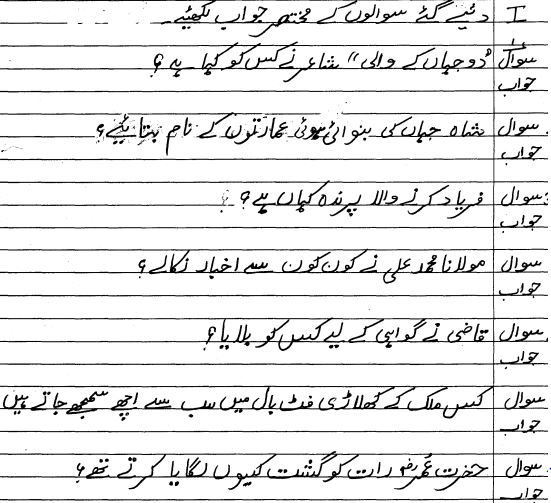 I دئیے گئے سوالوں کے مختصر جواب لکھئیے
سوال ۱ "دو جہاں کے والی" شاعر نے کس کو کہا ہے؟
جواب
سوال شاہ جہاں کی بنوائی ہوئی عمارتوں کے نام بتائیے؟
جواب
سوال فریاد کرنے والا پرندہ کہاں ہے؟
جواب
سوال مولانا محمد علی نے کون کون سے اخبار نکالے؟
جواب
سوال قاضی نے گواہی کے لیے کس کو بلایا؟
جواب
سوال کس ملک کے کھلاڑی فٹ بال میں سب سے اچھے سمجھے جاتے ہیں
جواب
سوال حضرت عمرؓ رات کو گشت کیوں لگایا کرتے تھے؟
جواب